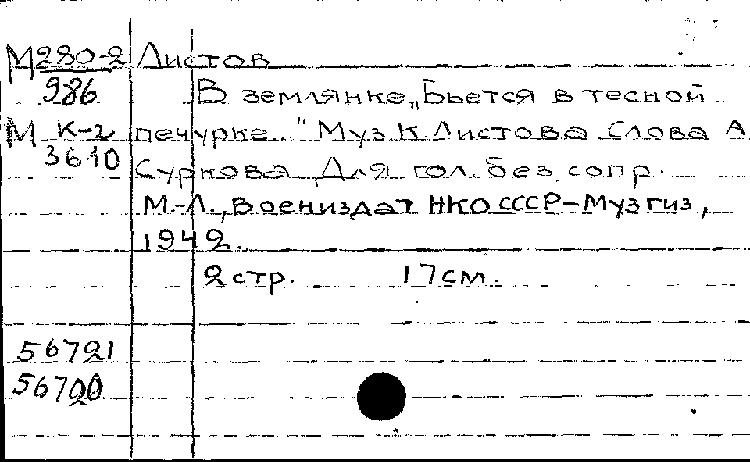 М 280-2 Листов
986 В землянке „Бьется в тесной
М К-2 печурке.." Муз. К. Листова Слова А.
3610 Суркова Для гол. без сопр.
М.-Л., Воениздат НКО СССР-Музгиз,
1942.
2 стр. 17 см.
56721
56700